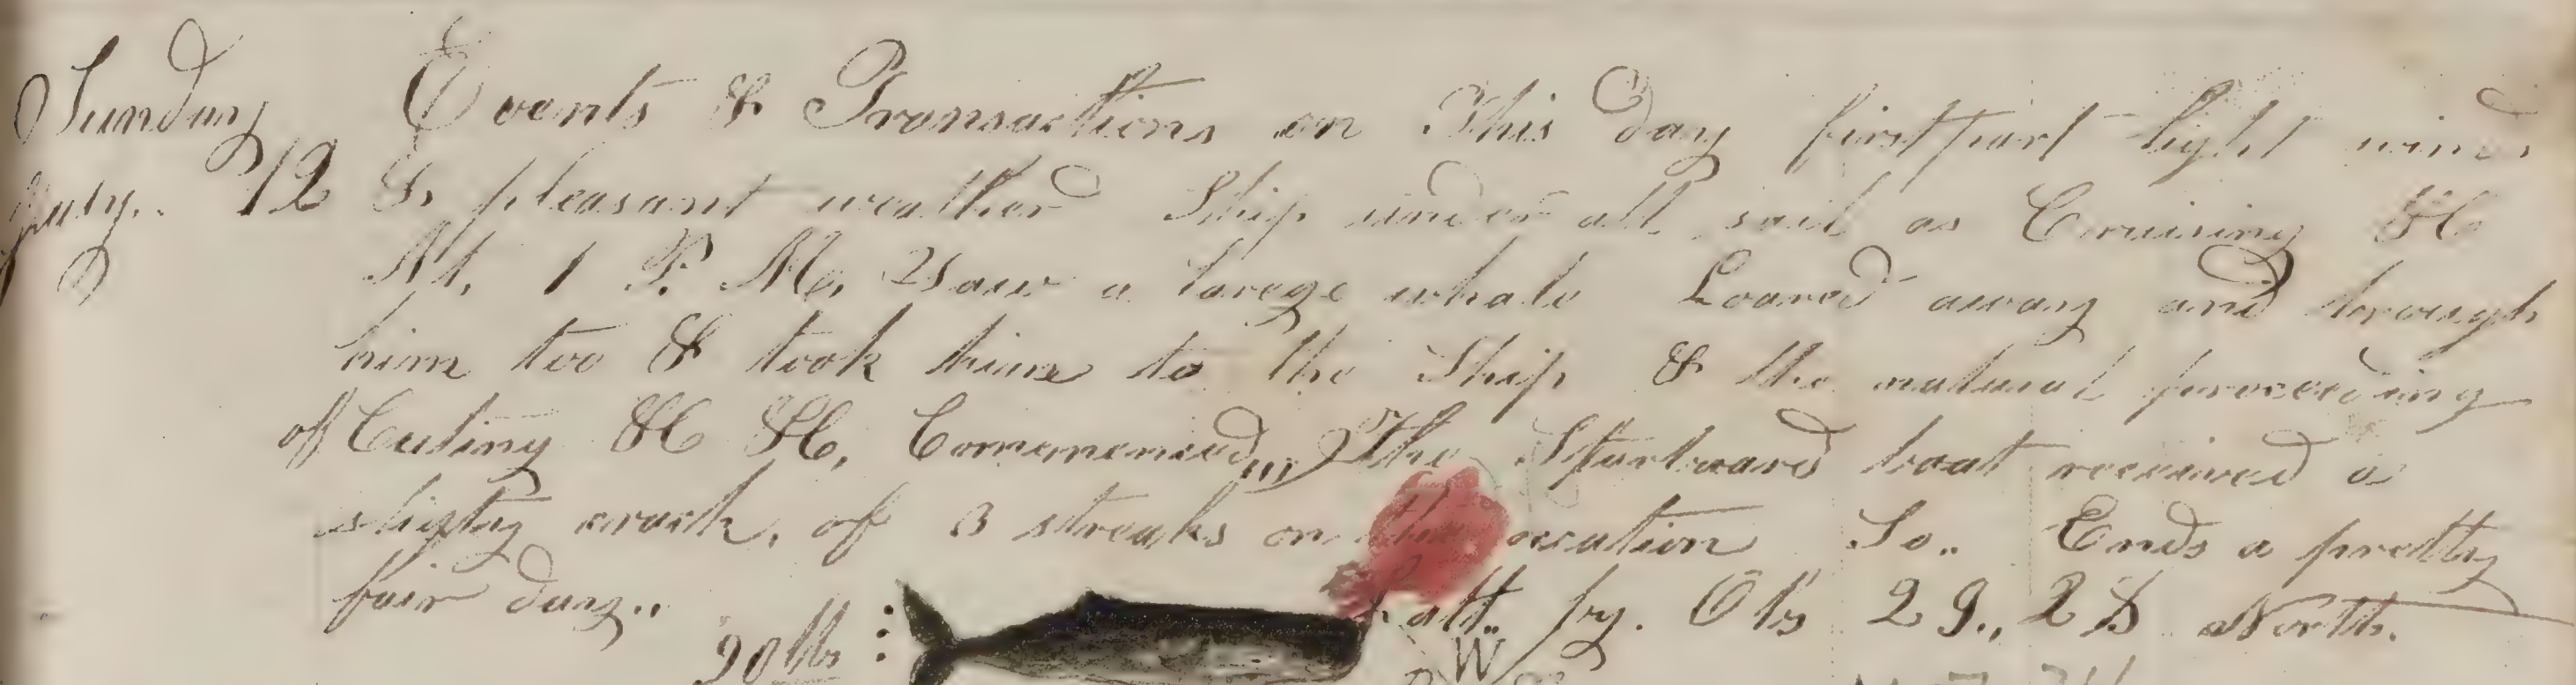 Sunday Events & Transactions on This day first part light winds
July. 12 & pleasant weather Ship under all sail as Cruising &C
At, 1 P. M, Saw a larege whale Loared away and brough
him too & took him to the Ship & the natural proceeding
of Cutting &C &C, Commenced,,, The Starboard boat received a
slighty crack, of 3 streaks on the occation So.. Ends a pretty
fair day..
90 bbls Latt. by. Obs 29., 28 North.
W